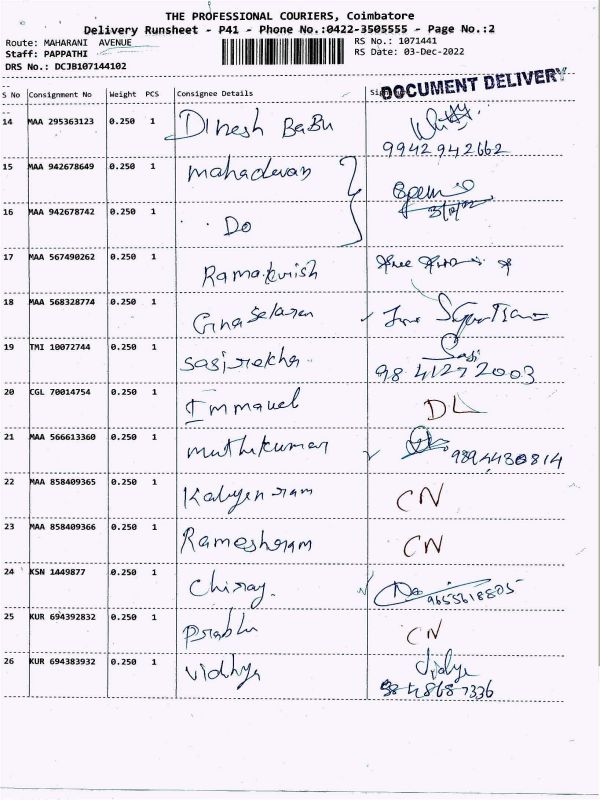 THE PROFESSIONAL COURIERS, Coimbatore
Delivery Runsheet - P41 - Phone No.:0422-3505555 - Page No.:2
Route: MAHARANI AVENUE RS No.: 1071441
Staff: PAPPATHI RS Date: 03-Dec-2022
DRS No.: DCJB107144102
DOCUMENT DELIVERY
S No Consignment No Weight PCS Consignee Details
14 MAA 295363123 0.250 1 Dinesh Babu
9942942662
15 MAA 942678649 0.250 1 mahadevan
16 MAA 942678742 0.250 1 Do
17 MAA 567490262 0.250 1 Ramakrish
18 MAA 568328774 0.250 1
19 TMI 10072744 0.250 1 Sasirekha Sasi
9841272003
20 CGL 70014754 0.250 1 Immanuel DL
21 MAA 566613360 0.250 1 muthukumar 9894480814
22 MAA 858409365 0.250 1 Kalyanram CN
23 MAA 858409366 0.250 1 Rameshram CN
24 KSN 1449877 0.250 1 Chiray 9655618805
25 KUR 694392832 0.250 1 Prabhu CN
26 KUR 694383932 0.250 1 Vidhya Vidhya